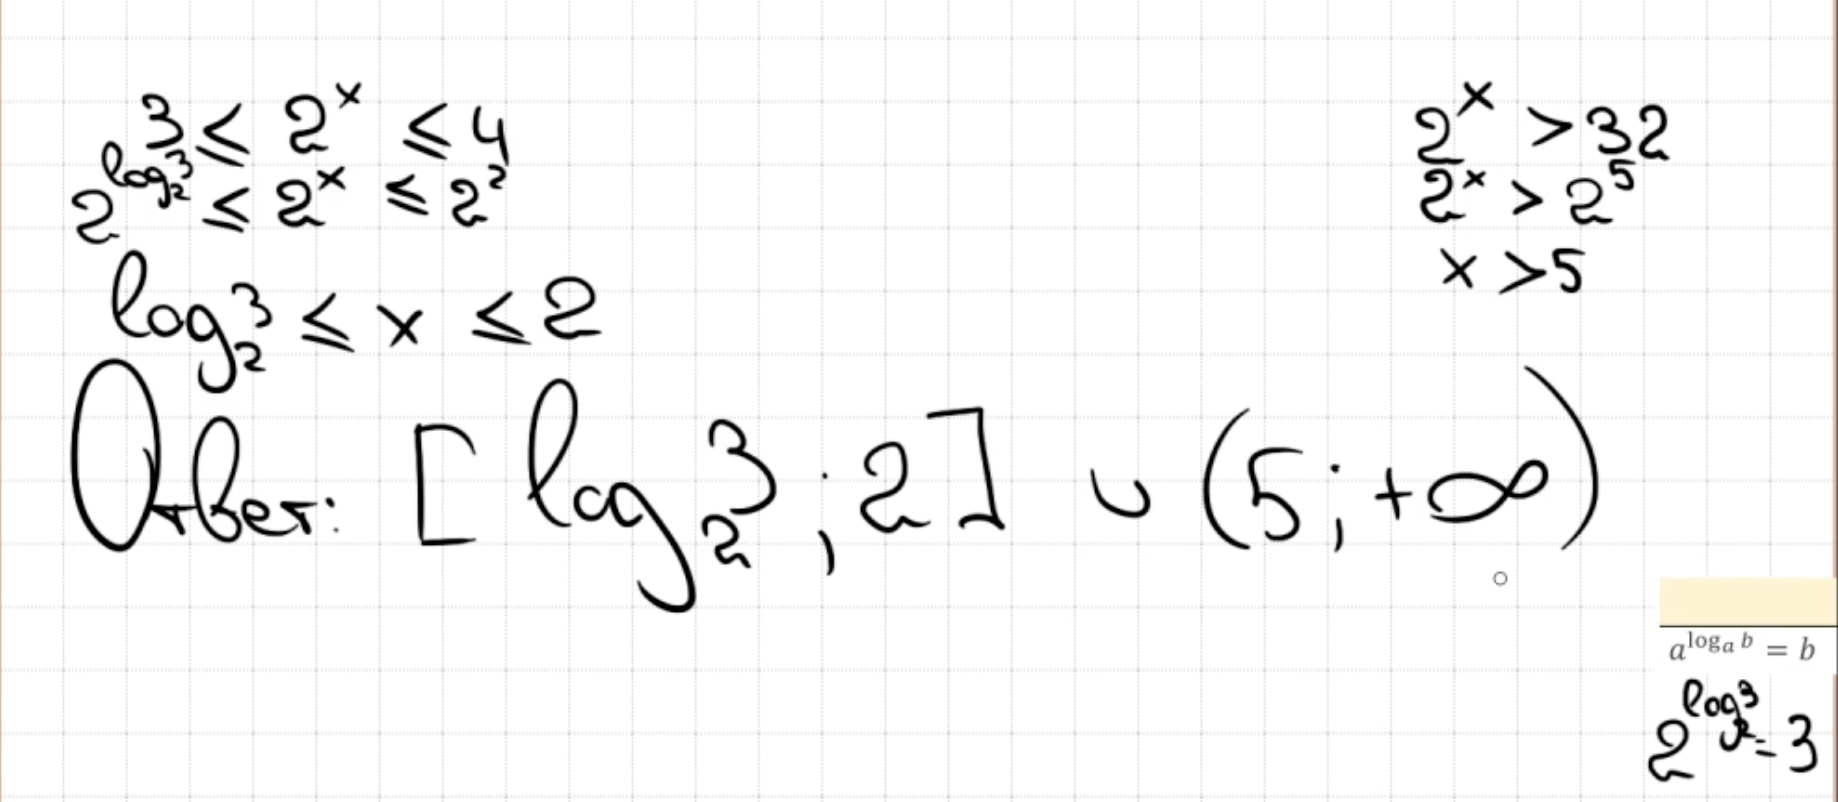 3 ≤ 2^x ≤ 4
2^{log_2 3} ≤ 2^x ≤ 2^2
log_2 3 ≤ x ≤ 2
2^x > 32
2^x > 2^5
x > 5
Ответ: [log_2 3 ; 2] ∪ (5 ; +∞)
a^{log_a b} = b
2^{log_2 3} = 3